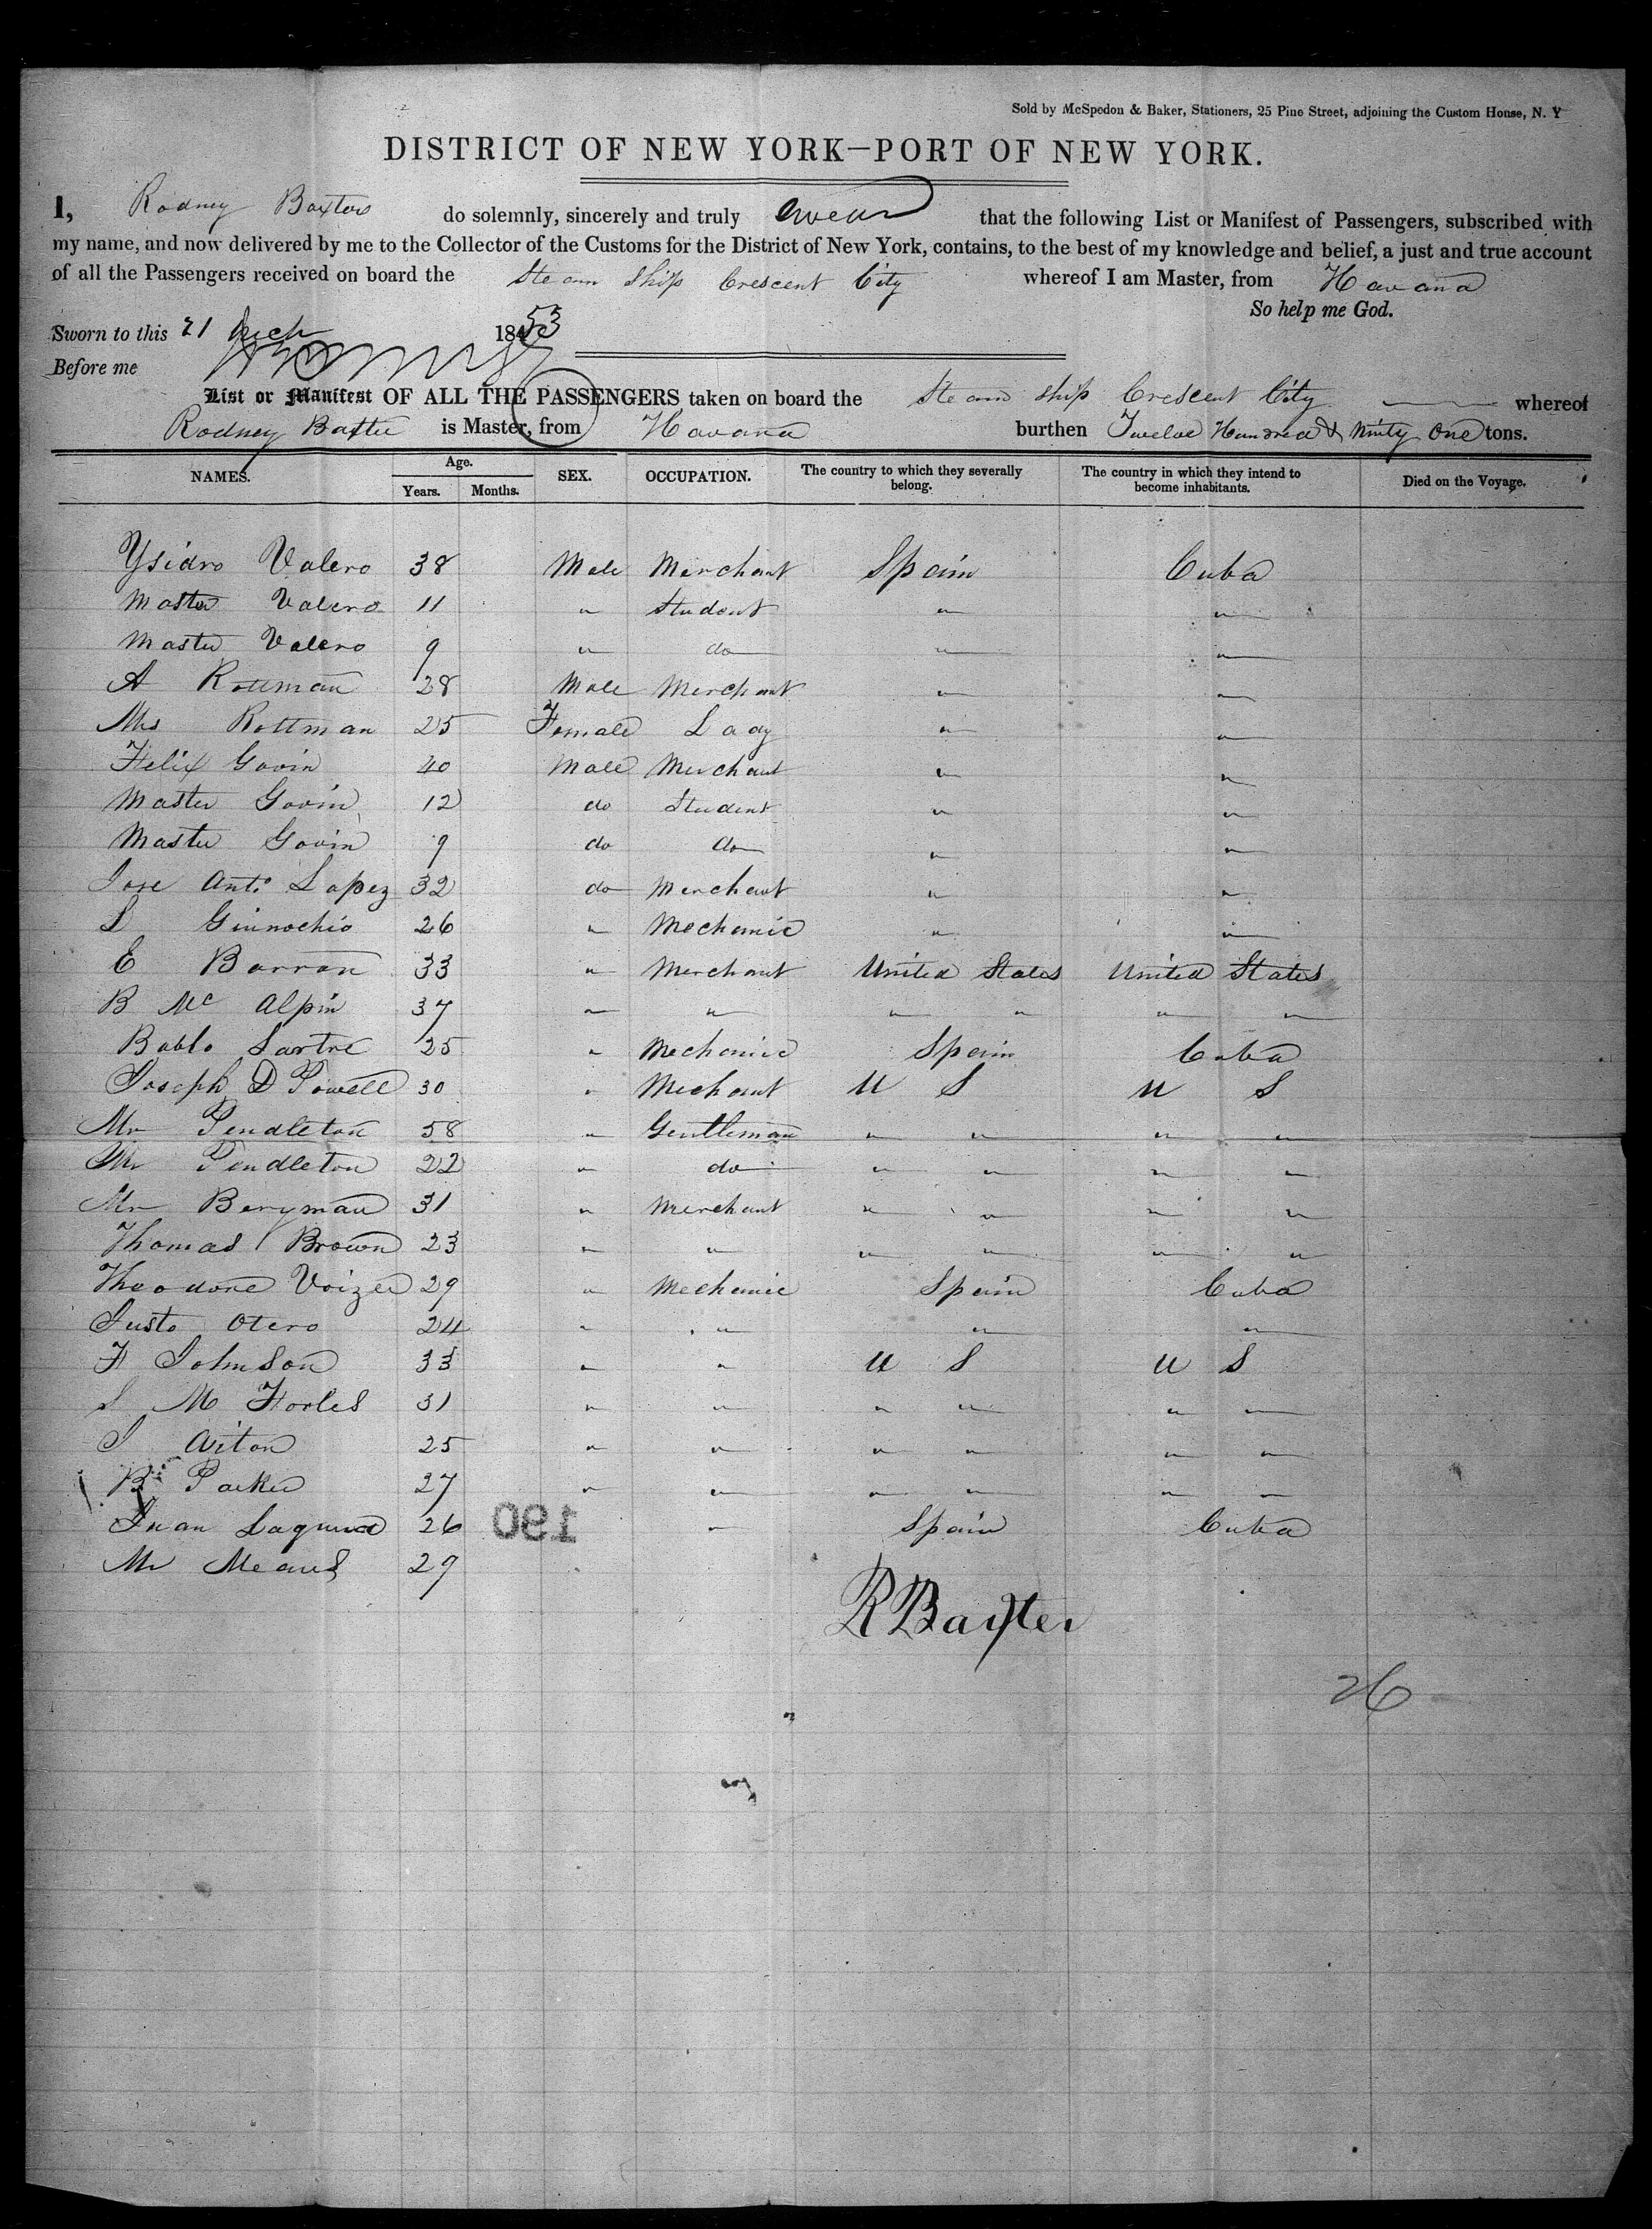 Sold by McSpedon & Baker, Stationers, 25 Pine Street, adjoining the Custom House, N. Y
DISTRICT OF NEW YORK—PORT OF NEW YORK.
I, Rodney Baxter do solemnly, sincerely and truly swear that the following List or Manifest of Passengers, subscribed with
my name, and now delivered by me to the Collector of the Customs for the District of New York, contains, to the best of my knowledge and belief, a just and true account
of all the Passengers received on board the Steam Ship Crescent City whereof I am Master, from Havana
So help me God.
Sworn to this 21 1853
Before me
List or Manifest OF ALL THE PASSENGERS taken on board the Steam ship Crescent City whereof
Rodney Baxter is Master, from Havana burthen Twelve Hundred & Ninty One tons.
NAMES. Age. Years. Months. SEX. OCCUPATION. The country to which they severally belong. The country in which they intend to become inhabitants. Died on the Voyage.
Ysidro Valero 38 Male Merchant Spain Cuba
Master Valero 11 " Student " "
Master Valero 9 " do " "
A Rottman 28 Male Merchant " "
Mrs Rottman 25 Female Lady " "
Felix Govin 40 Male Merchant " "
Master Govin 12 do Student " "
Master Govin 9 do do " "
Jose Anto Lopez 32 do Merchant " "
L Ginnochio 26 " Mechanic " "
E Barron 33 " Merchant United States United States
B Mc Alpin 37 " " " " " "
Bablo Sartre 25 " Mechanic Spain Cuba
Joseph D Powell 30 " Mechant U S U S
Mr Pendleton 58 " Gentleman " " " "
Mr Pendleton 22 " do " " " "
Mr Beryman 31 " Merchant " " " "
Thomas Brown 23 " " " " " "
Theodore Voizer 29 " Mechanic Spain Cuba
Justo Otero 24 " " " "
F Johnson 33 " " U S U S
S M Forles 31 " " " " " "
J Aiton 25 " " " " " "
B Parker 27 " " " " " "
Juan 26 190 " Spain Cuba
Mr Means 29
R Baxter
26